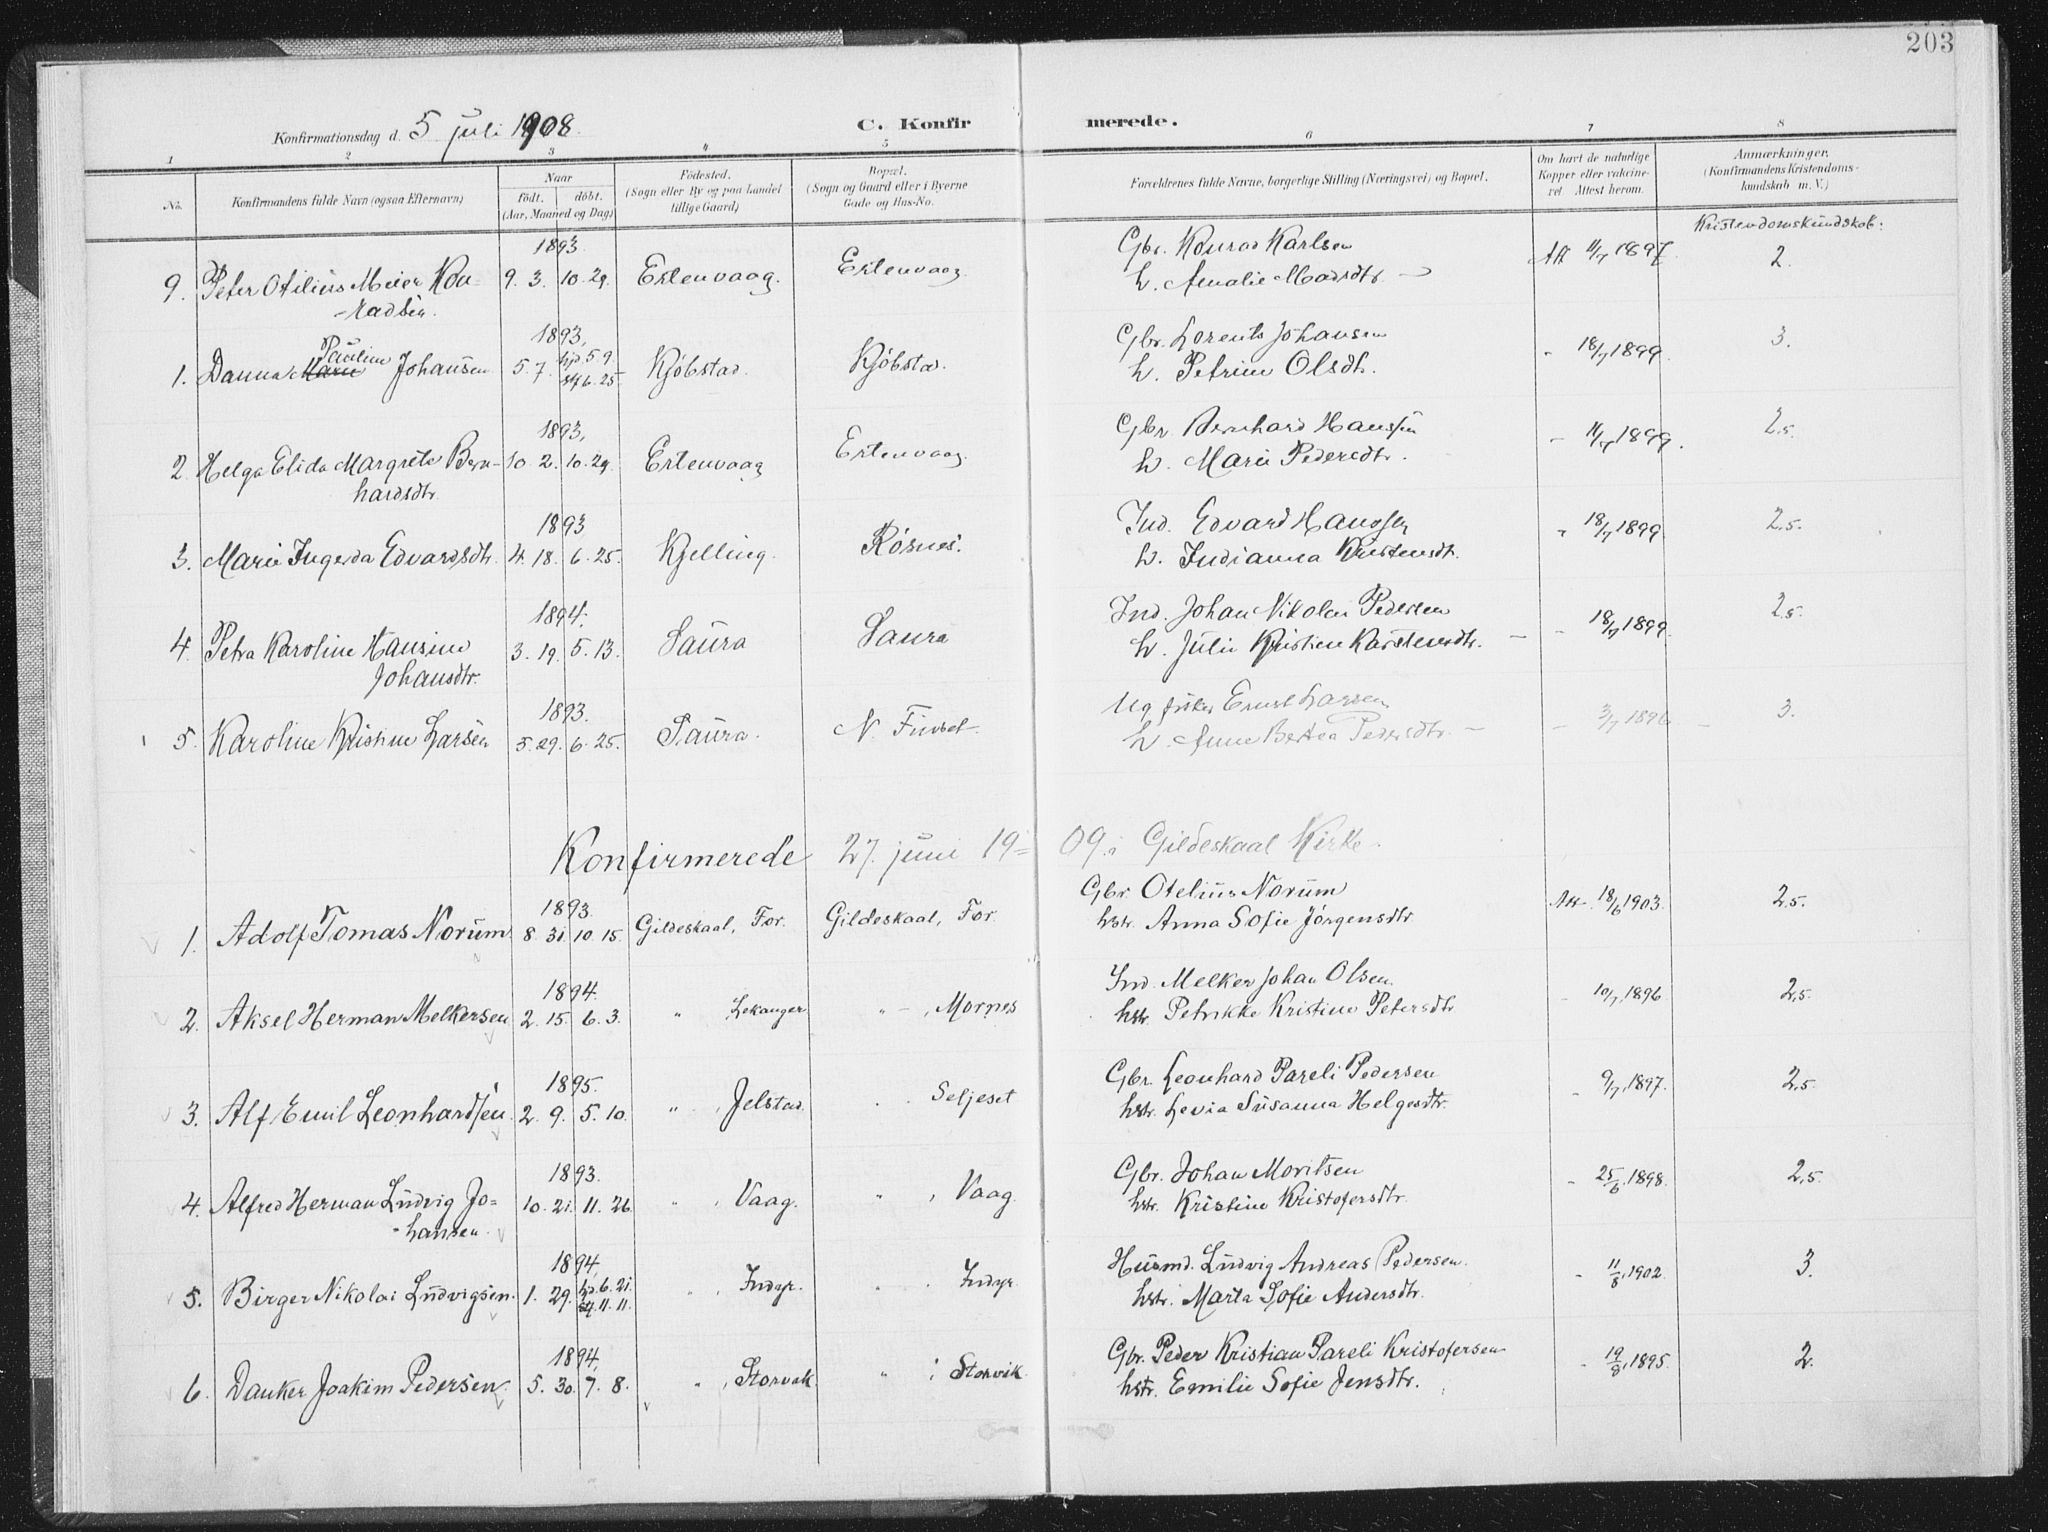 203
Konfirmationsdag d. 5 juli 1908.
C. Konfirmerede.
1 2 3 4 5 6 7 8
No.
Konfirmandens fulde Navn (ogsaa Efternavn)
Naar
født. døbt.
(Aar, Maaned og Dag)
Fødested.
(Sogn eller By og paa Landet
tillige Gaard)
Bopæl.
(Sogn og Gaard eller i Byerne
Gade og Hus-No.
Forældrenes fulde Navne, borgerlige Stilling (Næringsvei) og Bopæl.
Om havt de naturlige
Kopper eller vakcineret. Attest herom.
Anmærkninger.
(Konfirmandens Kristendomskundskab m. V.)
Kristendomskundskab:
1893.
9. Peter Otilius Meier Kon- 9. 3. 10. 29. Ertenvaag. Ertenvaag. Gbr. Konrad Karlsen Att 11/7 1897. 2.
-radsen. h. Amalie Madsdtr. —
1893,
1. Danna Marie Pauline Johansen 5. 7. hjd. 5. 9. Kjøbstad. Kjøbstad. Gbr. Lorents Johansen " 18/7 1899. 3.
stf 6. 25. h. Petrine Olsdtr.
1893,
2. Helga Elida Margrete Bern- 10. 2. 10. 29. Ertenvaag Ertenvaag. Gbr. Bernhard Hanssen " 11/7 1899. 2.5.
hardsdtr. h. Marie Pedersdtr.
1893
3. Marie Ingerda Edvardsdtr. 4. 18. 6. 25. Kjelling. Røsnes. Ind. Edvard Hanssen " 18/7 1899 2.5.
h. Indianna Kristensdtr.
1894.
4. Petra Karoline Hansine 3. 19. 5. 13. Saura Saura Ind. Johan Nikolai Pedersen " 18/7 1899. 2.5.
Johansdtr. h. Julie Kristine Karstensdtr. —
1893.
5. Karoline Kristine Larsen 5. 29. 6. 25. Saura. N. Finset Ug. fisker Ernst Larsen — 3/7 1896 — 3.
h. Anne Bertea Pedersdtr. —
Konfirmerede 27. juni 19=09. i Gildeskaal Kirke.
1893.
1. Adolf Tomas Norum 8. 31. 10. 15. Gildeskaal, For. Gildeskaal, For. Gbr. Otelius Norum Att. 18/6 1903. 2.5.
hstr. Anna Sofie Jørgensdtr.
1894.
2. Aksel Herman Melkersen 2. 15. 6. 3. " Lekanger " —, Mornes Ind. Melker Johan Olsen. " 10/7 1896. 2.5.
hstr. Petrikke Kristine Petersdtr
1895.
3. Alf Emil Leonhardsen. 2. 9. 5. 10. " , Jelstad. " Seljeset Gbr. Leonhard Pareli Pedersen " 9/7 1897. 2.5.
hstr. Levia Susanna Helgesdtr.
1893.
4. Alfred Herman Ludvig Jo= 10. 21. 11. 26. " , Vaag. " , Vaag. Gbr. Johan Moritsen " 25/6 1898. 2.5.
-hansen. hstr. Kristine Kristofersdtr.
1894,
5. Birger Nikolai Ludvigsen. 1. 29. hjd. 6. 21. " , Indyr. " . Indyr. Husmd. Ludvig Andreas Pedersen. " 11/8 1902. 3.
stf. 11. 11. hstr. Marta Sofie Andersdtr.
1894,
6. Danker Joakim Pedersen. 5. 30. 7. 8. " , Storvik. " , Storvik. Gbr. Peder Kristian Pareli Kristofersen " 19/8 1895. 2.
hstr. Emilie Sofie Jensdtr.